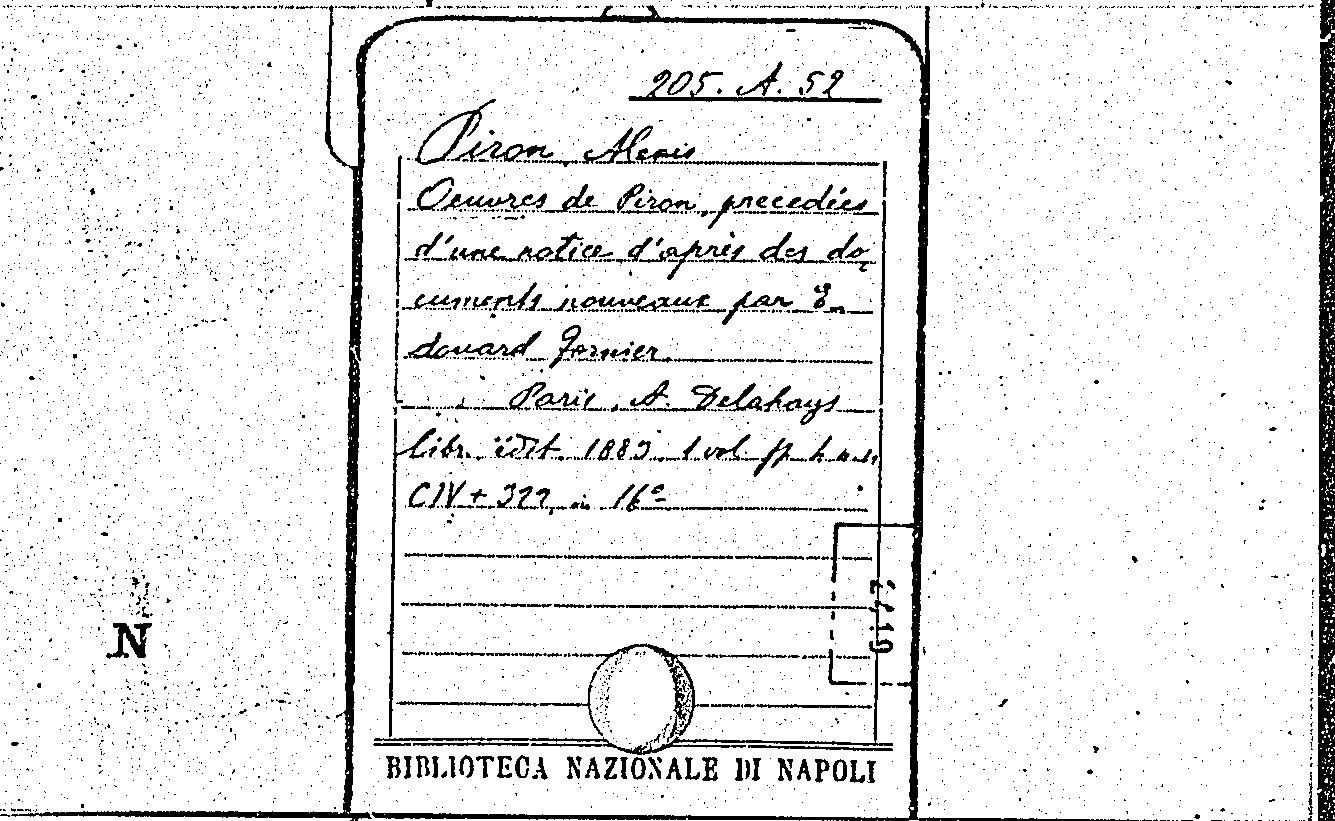 205. A. 52
Piron, Alexis
Oeuvres de Piron, precedées
d'une notice d'après des do
cuments nouveaux par E
douard Fornier
Paris, A. Delahays
libr. édit. 188 1 vol. pp.
CIV + in 16º
N
BIBLIOTECA NAZIONALE DI NAPOLI